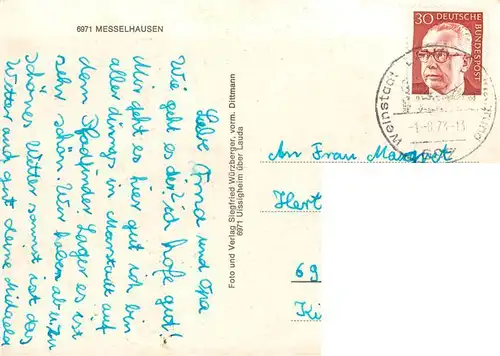 6971 MESSELHAUSEN
Liebe Oma und Opa
Wie geht es dir? ich hofe gut!
Mir geht es hier gut ich bin
aller dungs in Marstadt auf
dem Pfadfinder Lager es ist
sehr schön. Wir haben ab u. zu
schönes Wetter sonnst ist das
Wetter auch gut deine Michaela
Foto und Verlag Siegfried Würzberger, vorm. Dittmann
6971 Uissigheim über Lauda
30 DEUTSCHE BUNDESPOST
Weinstadt
An Frau Margret
Hert
69
Ki